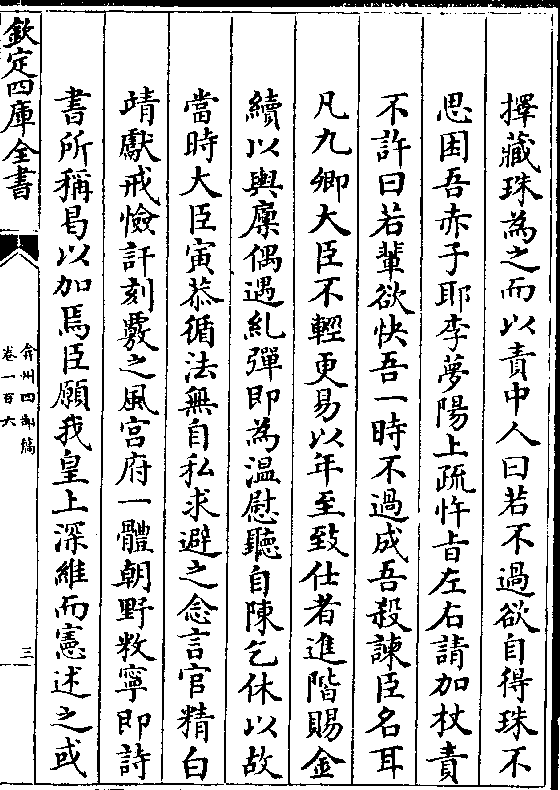 擇藏珠為之而以責中人曰若不過欲自得珠不
思困吾赤子耶李夢陽上疏忤㫖左右請加杖責
不許曰若輩欲快吾一時不過成吾殺諫臣名耳
凡九卿大臣不輕更易以年至致仕者進階賜金
續以輿廩偶遇糺彈即為温慰聽自陳乞休以故
當時大臣寅恭循法無自私求避之念言官精白
靖獻戒憸訐刻覈之風宫府一體朝野敉寧即詩
書所稱曷以加焉臣願我皇上深維而憲述之或
欽定四庫全書
弇州四部稿
卷一百六
三